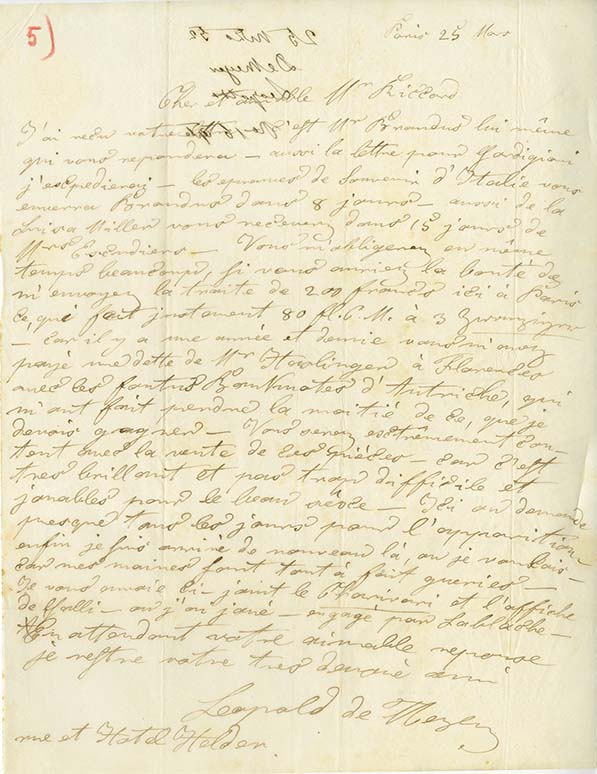 5)
Paris 25 Mars
Cher et aimable Mr Riccord
J'ai reçu votre c'est Mr Brandus lui même
qui vous reponderai – aussi la lettre pour Gordigiani
j'espedierai – les epreuves de Souvenir d'Italie vous
enverra Brandus dans 8 jours – aussi de la
Luisa Miller vous recevrez dans 15 jours de
Mrs Escudiers – Vous m'obligerez en même
temps beaucoup, si vous auriez la bonté de
m'envoyer la traite de 200 francs ici à Paris
ce, que fait justement 80 fl. C. M. à 3 Zwanziger
– car il y a une année et demie vous m'avez
payé une dette de Mr Haslinger à Florence
avec les foutus BankNotes d'Autriche, qui
m'ont fait perdre la moitié de ce, que je
devois gagner – Vous serez extrêmement con-
tent avec la vente de ces pièces – car c'est
tres brillant et pas trop difficile et
jouables pour le beau séxe – Ici on demande
presque tous les jours pour l'apparition
enfin je suis arrivé de nouveau là, ou je voulois –
car mes maines sont tout à fait gueries –
Je vous envoie ci-joint le Charivari et l'affiche
de où j'ai joué – engagé par Lablache –
En attendant votre aimable reponse
je reste votre tres devoué ami
Leopold de Meyer
rue et Hotel Helder.
25 Marzo 52
De Meyer